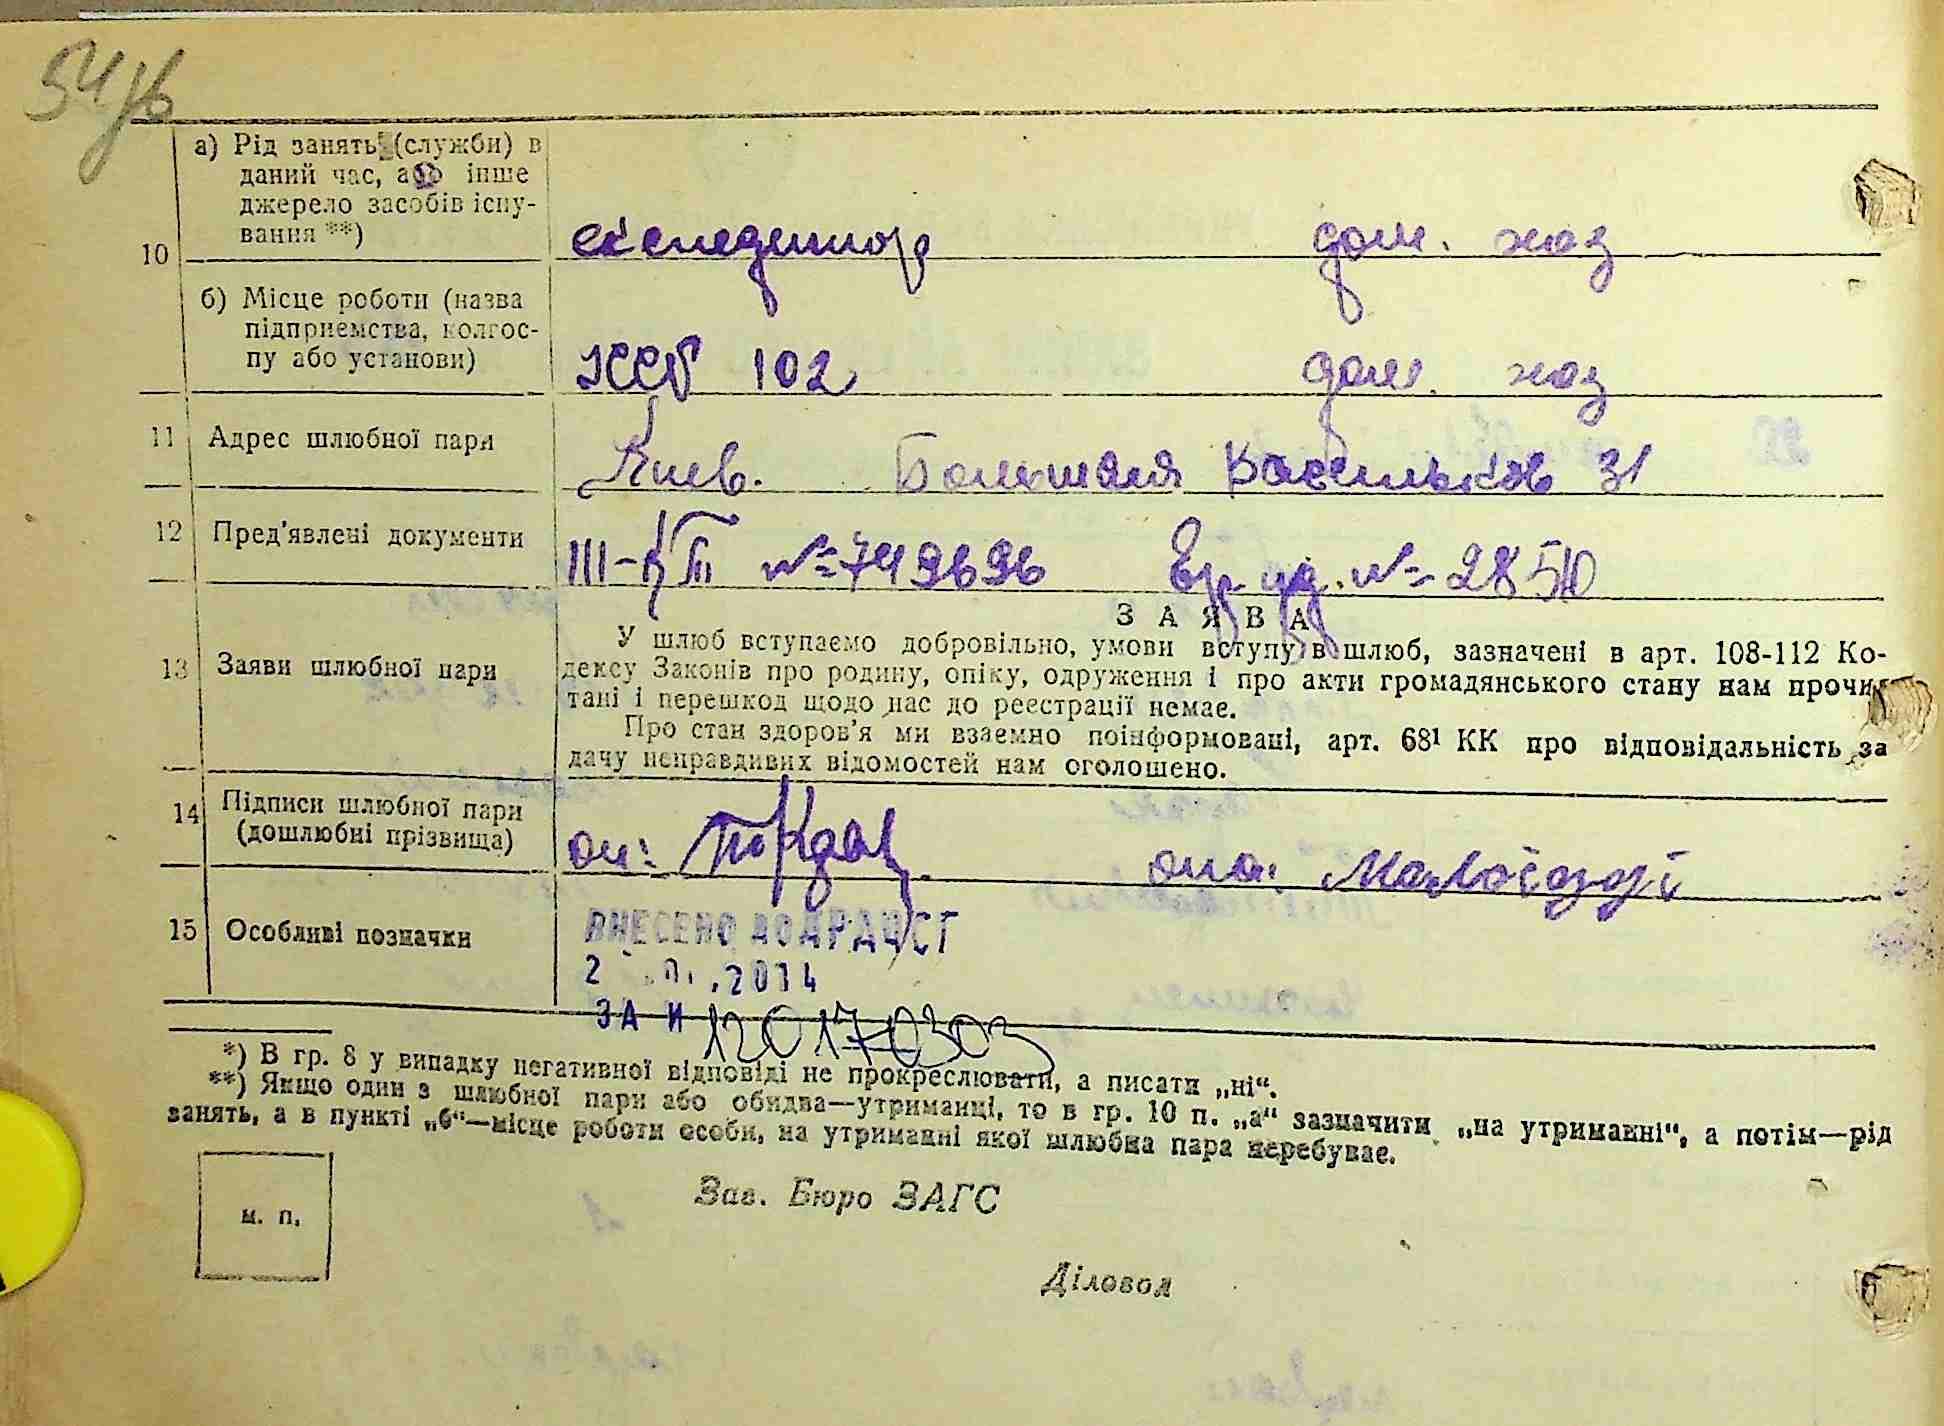 а) Рід занять (служби) в
даний час, або інше
джерело засобів існу-
вання **)
експедитор дом. хоз
10
б) Місце роботи (назва
підприємства, колгос-
пу або установи)
102 дом. хоз
11 Адрес шлюбної пари
Киев. Большая Васильков 31
12 Пред'явлені документи
№ 749696 № 28510
З А Я В А
13 Заяви шлюбної пари
У шлюб вступаємо добровільно, умови вступу в шлюб, зазначені в арт. 108-112 Ко-
дексу Законів про родину, опіку, одруження і про акти громадянського стану нам прочи-
тані і перешкод щодо нас до реєстрації немає.
Про стан здоров'я ми взаємно поінформовані, арт. 68¹ КК про відповідальність за
дачу неправдивих відомостей нам оголошено.
14 Підписи шлюбної пари
(дошлюбні прізвища)
он: она:
15 Особливі позначки
ВНЕСЕНО ДО ДРАЦСГ
2 .2014
ЗА N 120170303
*) В гр. 8 у випадку негативної відповіді не прокреслювати, а писати „ні“.
**) Якщо один з шлюбної пари або обидва—утриманці, то в гр. 10 п. „а“ зазначити „на утриманні“, а потім—рід
занять, а в пункті „б“—місце роботи особи, на утриманні якої шлюбна пара перебуває.
м. п.
Зав. Бюро ЗАГС
Діловод